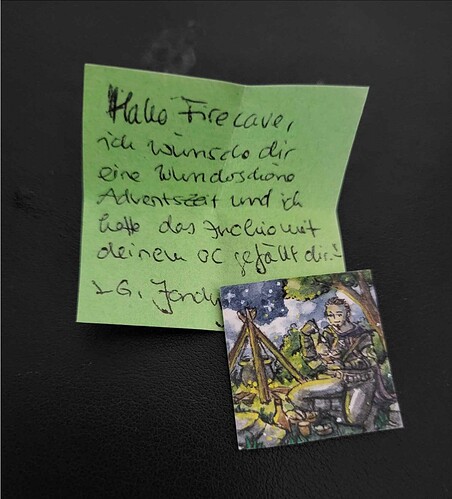 Hallo Firecave,
ich wünsche dir
eine wunderschöne
Adventszeit und ich
hoffe das Inchie mit
deinem OC gefällt dir!
LG,